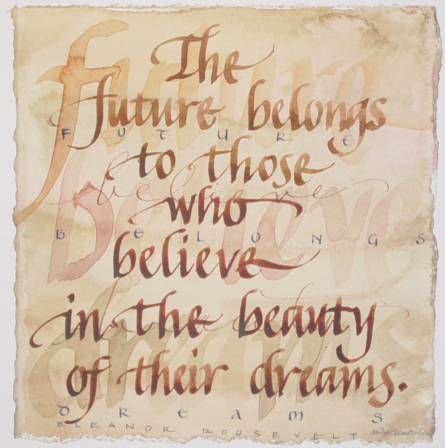 The
future belongs
F U T U R E
to those
believe
who
B E L O N G S
believe
in the beauty
of their dreams.
D R E A M S
ELEANOR ROOSEVELT
future
believe
dreams